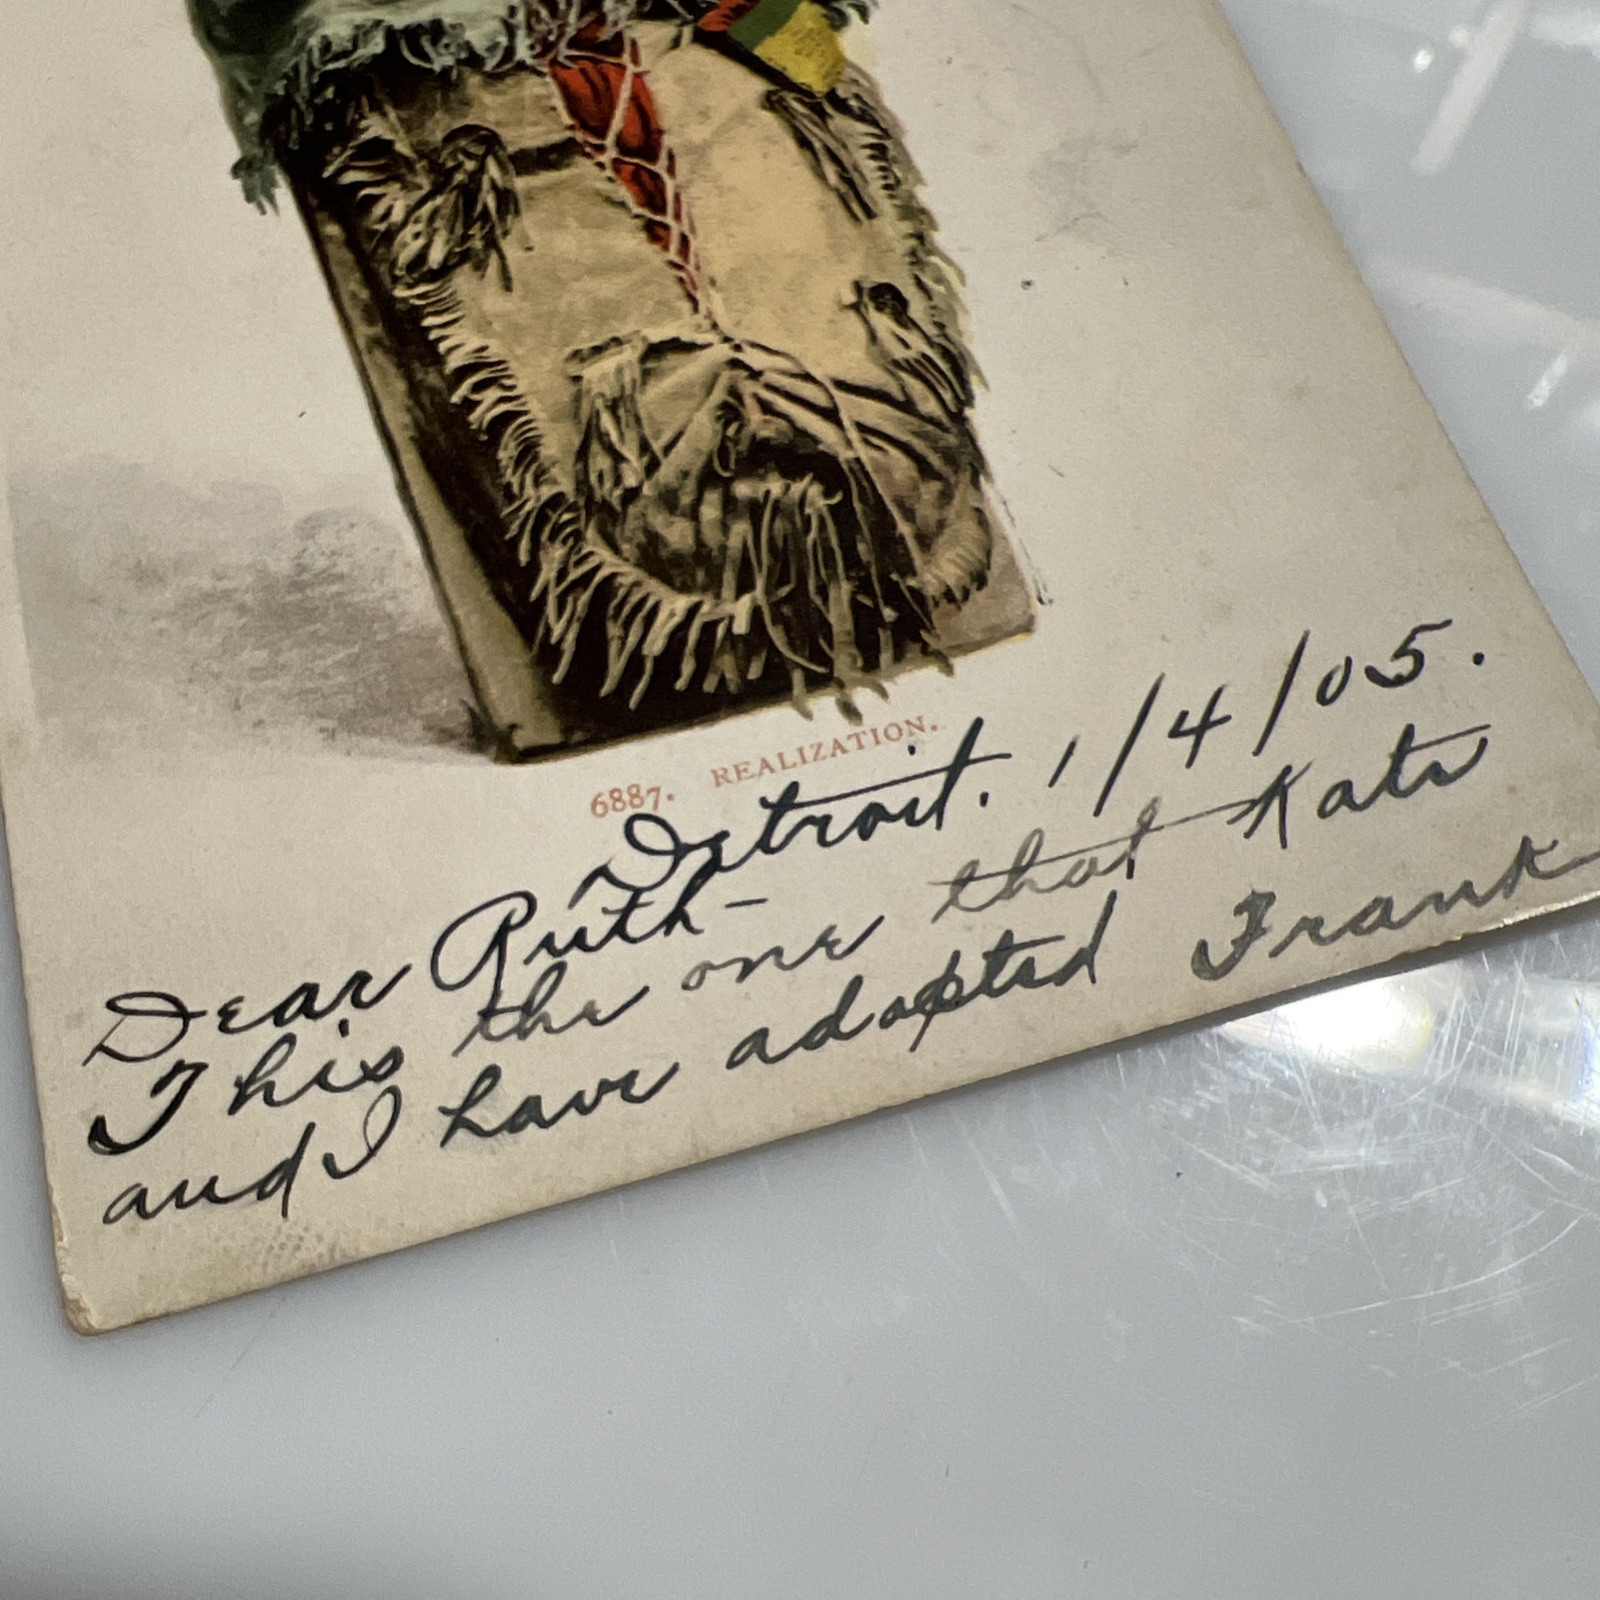 6887. REALIZATION.
Detroit. 1/4/05.
Dear Ruth-
This the one that Kate
and I have adopted Frank